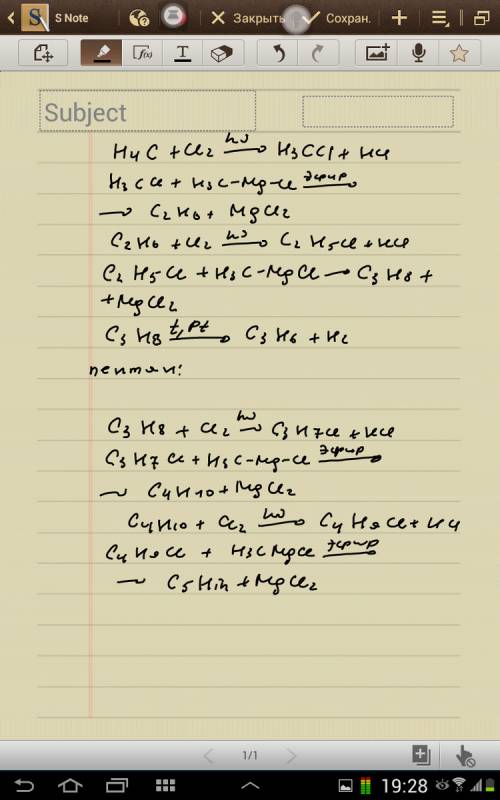 S Note
Закрыть
Сохран.
Subject
H4C + Cl2 hν→ H3CCl + HCl
H3CCl + H3C-Mg-Cl эфир→
→ C2H6 + MgCl2
C2H6 + Cl2 hν→ C2H5Cl + HCl
C2H5Cl + H3C-MgCl → C3H8 +
+ MgCl2
C3H8 t, Pt→ C3H6 + H2
пентан:
C3H8 + Cl2 hν→ C3H7Cl + HCl
C3H7Cl + H3C-Mg-Cl эфир→
→ C4H10 + MgCl2
C4H10 + Cl2 hν→ C4H9Cl + HCl
C4H9Cl + H3CMgCl эфир→
→ C5H12 + MgCl2
1/1
19:28